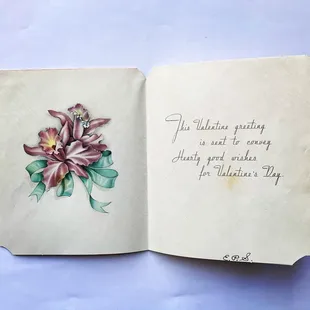 This Valentine greeting
is sent to convey
Hearty good wishes
for Valentine's Day
E.P.S.